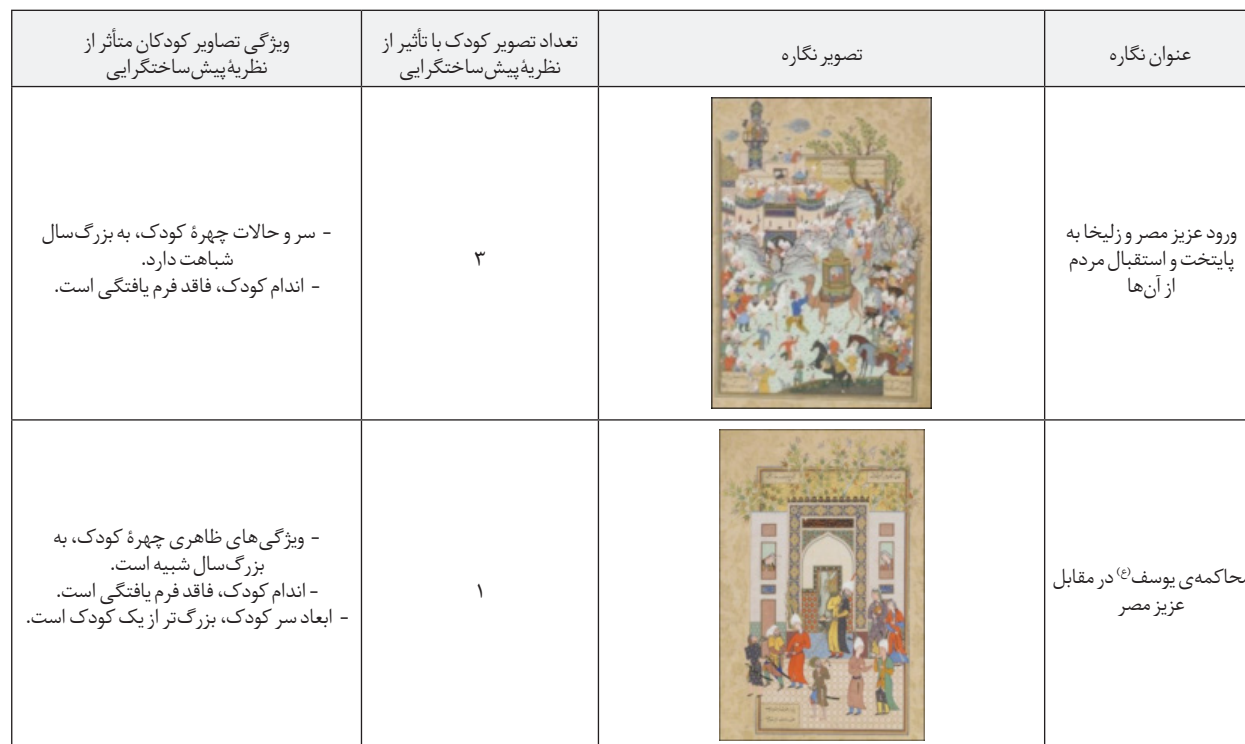 عنوان نگاره
تصویر نگاره
تعداد تصویر کودک با تأثیر از
نظریهٔ پیش‌ساختگرایی
ویژگی تصاویر کودکان متأثر از
نظریهٔ پیش‌ساختگرایی
ورود عزیز مصر و زلیخا به
پایتخت و استقبال مردم
از آن‌ها
۳
- سر و حالات چهرهٔ کودک، به بزرگ‌سال
شباهت دارد.
- اندام کودک، فاقد فرم یافتگی است.
محاکمه‌ی یوسف(ع) در مقابل
عزیز مصر
۱
- ویژگی‌های ظاهری چهرهٔ کودک، به
بزرگ‌سال شبیه است.
- اندام کودک، فاقد فرم یافتگی است.
- ابعاد سر کودک، بزرگ‌تر از یک کودک است.